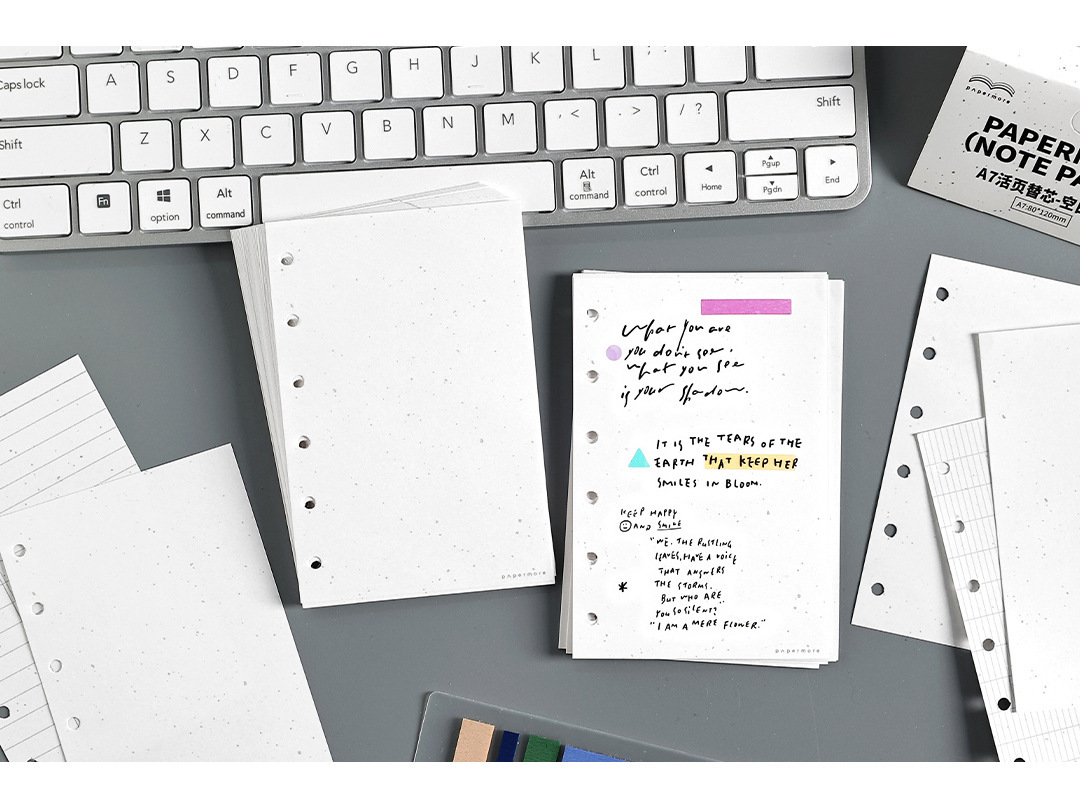 Caps lock A S D F G H J K L ; :
Shift Z X C V B N M , < . > / ? Shift
Ctrl control Fn option Alt command Alt command Ctrl control Home Pgup Pgdn End
papermore
PAPER
(NOTE PA
A7活页替芯-空
A7:80*120mm
papermore
What you are
you don't see.
What you see
is your shadow.
IT IS THE TEARS OF THE
EARTH THAT KEEP HER
SMILES IN BLOOM.
KEEP HAPPY
AND SMILE
"WE, THE RUSTLING
LEAVES, HAVE A VOICE
THAT ANSWERS
THE STORMS.
BUT WHO ARE
YOU SO SILENT?"
"I AM A MERE FLOWER."
papermore